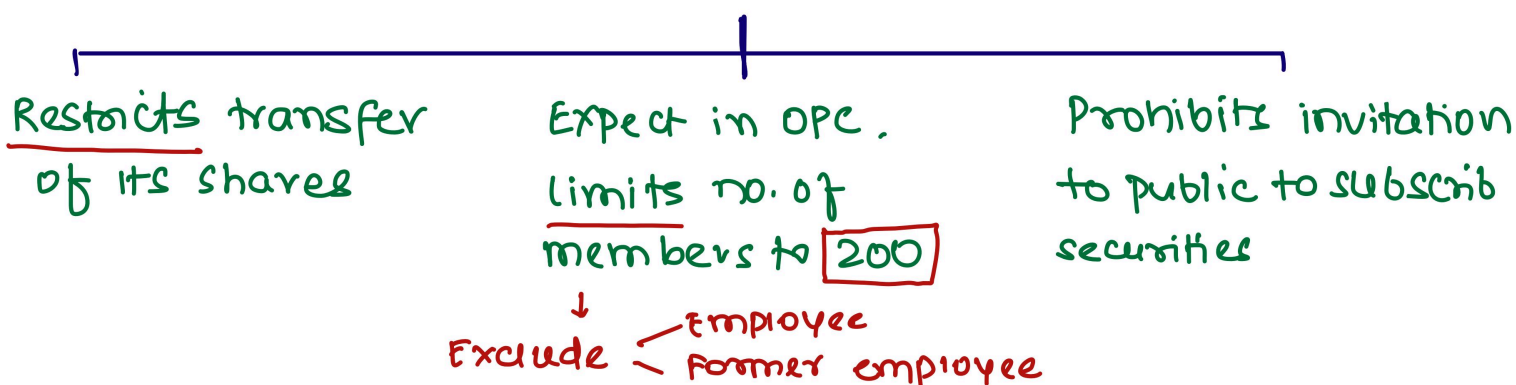 Restricts transfer
of its shares
Expect in OPC.
limits no. of
members to 200
Exclude
Employee
Former employee
Prohibits invitation
to public to subscrib
securities